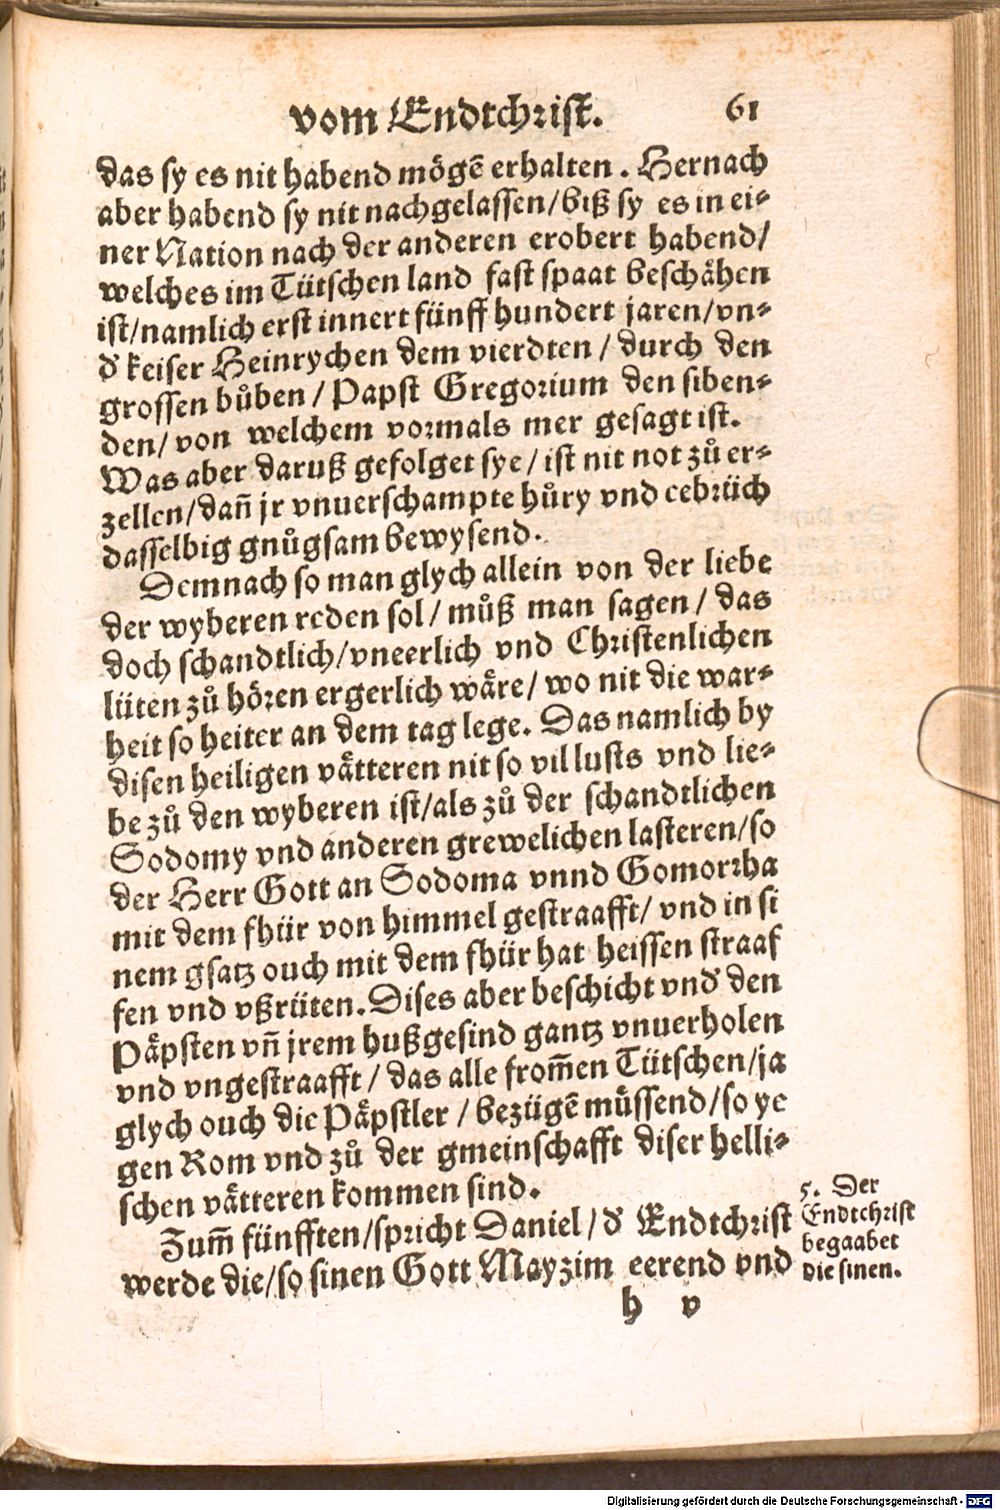 vom Endtchrist. 61
das sy es nit habend mögē erhalten. Hernach
aber habend sy nit nachgelassen/biß sy es in ei⸗
ner Nation nach der anderen erobert habend/
welches im Tütschen land fast spaat beschähen
ist/namlich erst innert fünff hundert jaren/vn⸗
d' keiser Heinrychen dem vierdten/durch den
grossen bůben/Papst Gregorium den siben⸗
den/von welchem vormals mer gesagt ist.
Was aber daruß gefolget sye/ist nit not zů er⸗
zellen/dañ jr vnuerschampte hůry vnd eebrüch
dasselbig gnůgsam bewysend.
Demnach so man glych allein von der liebe
der wyberen reden sol/můß man sagen/das
doch schandtlich/vneerlich vnd Christenlichen
lüten zů hören ergerlich wåre/wo nit die war⸗
heit so heiter an dem tag lege. Das namlich by
disen heiligen våtteren nit so vil lusts vnd lie⸗
be zů den wyberen ist/als zů der schandtlichen
Sodomy vnd anderen grewelichen lasteren/so
der Herr Gott an Sodoma vnnd Gomorrha
mit dem fhür von himmel gestraafft/vnd in si
nem gsatz ouch mit dem fhür hat heissen straaf
fen vnd vßrüten. Dises aber beschicht vnd' den
Påpsten vñ jrem hußgesind gantz vnuerholen
vnd vngestraafft/das alle from̄en Tütschen/ja
glych ouch die Påpstler/bezügē müssend/so ye
gen Rom vnd zů der gmeinschafft diser helli⸗
schen våtteren kommen sind.
Zum̄ fünfften/spricht Daniel/d' Endtchrist
werde die/so sinen Gott Mayzim eerend vnd
5. Der
Endtchrist
begaabet
die sinen.
h v
Digitalisierung gefördert durch die Deutsche Forschungsgemeinschaft - DFG